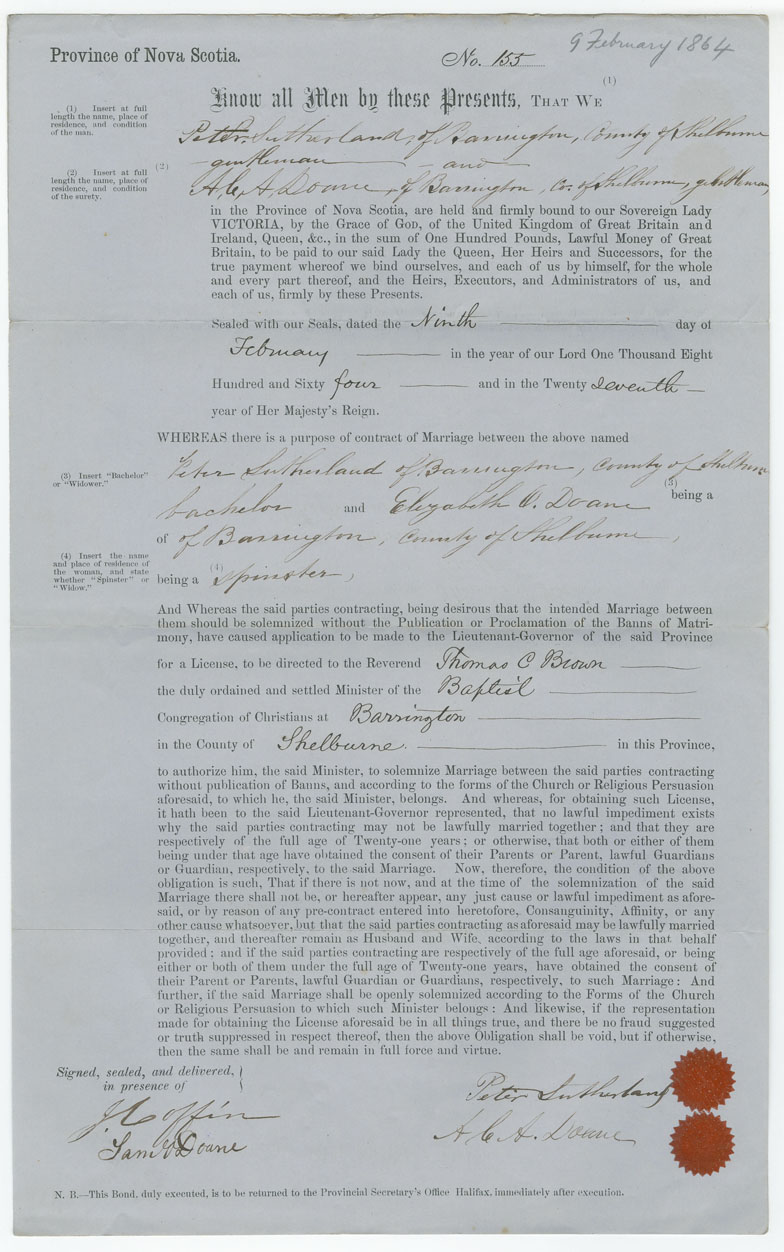 9 February 1864
Province of Nova Scotia.
No. 155
(1)
Know all Men by these Presents, THAT WE
(1) Insert at full
length the name, place of
residence, and condition
of the man.
Peter Sutherland, of Barrington, County of Shelburne
gentleman — and —
(2)
(2) Insert at full
length the name, place of
residence, and condition
of the surety.
A. C. A. Doane, of Barrington, Co. of Shelburne, gentleman,
in the Province of Nova Scotia, are held and firmly bound to our Sovereign Lady
VICTORIA, by the Grace of GOD, of the United Kingdom of Great Britain and
Ireland, Queen, &c., in the sum of One Hundred Pounds, Lawful Money of Great
Britain, to be paid to our said Lady the Queen, Her Heirs and Successors, for the
true payment whereof we bind ourselves, and each of us by himself, for the whole
and every part thereof, and the Heirs, Executors, and Administrators of us, and
each of us, firmly by these Presents.
Sealed with our Seals, dated the Ninth — day of
February — in the year of our Lord One Thousand Eight
Hundred and Sixty four — and in the Twenty seventh —
year of Her Majesty's Reign.
WHEREAS there is a purpose of contract of Marriage between the above named
Peter Sutherland of Barrington, County of Shelburne
(3) Insert "Bachelor"
or "Widower."
(3)
being a
bachelor and Elizabeth O. Doane
of of Barrington, County of Shelburne,
(4) Insert the name
and place of residence of
the woman, and state
whether "Spinster" or
"Widow."
being a (4) Spinster,
And Whereas the said parties contracting, being desirous that the intended Marriage between
them should be solemnized without the Publication or Proclamation of the Banns of Matri-
mony, have caused application to be made to the Lieutenant-Governor of the said Province
for a License, to be directed to the Reverend Thomas C Brown —
the duly ordained and settled Minister of the Baptist —
Congregation of Christians at Barrington —
in the County of Shelburne. — in this Province,
to authorize him, the said Minister, to solemnize Marriage between the said parties contracting
without publication of Banns, and according to the forms of the Church or Religious Persuasion
aforesaid, to which he, the said Minister, belongs. And whereas, for obtaining such License,
it hath been to the said Lieutenant-Governor represented, that no lawful impediment exists
why the said parties contracting may not be lawfully married together; and that they are
respectively of the full age of Twenty-one years; or otherwise, that both or either of them
being under that age have obtained the consent of their Parents or Parent, lawful Guardians
or Guardian, respectively, to the said Marriage. Now, therefore, the condition of the above
obligation is such, That if there is not now, and at the time of the solemnization of the said
Marriage there shall not be, or hereafter appear, any just cause or lawful impediment as afore-
said, or by reason of any pre-contract entered into heretofore, Consanguinity, Affinity, or any
other cause whatsoever, but that the said parties contracting as aforesaid may be lawfully married
together, and thereafter remain as Husband and Wife, according to the laws in that behalf
provided; and if the said parties contracting are respectively of the full age aforesaid, or being
either or both of them under the full age of Twenty-one years, have obtained the consent of
their Parent or Parents, lawful Guardian or Guardians, respectively, to such Marriage: And
further, if the said Marriage shall be openly solemnized according to the Forms of the Church
or Religious Persuasion to which such Minister belongs: And likewise, if the representation
made for obtaining the License aforesaid be in all things true, and there be no fraud suggested
or truth suppressed in respect thereof, then the above Obligation shall be void, but if otherwise,
then the same shall be and remain in full force and virtue.
Signed, sealed, and delivered,
in presence of
Peter Sutherland
J Coffin
A. C. A. Doane
Saml Doane
N. B.—This Bond, duly executed, is to be returned to the Provincial Secretary's Office Halifax, immediately after execution.